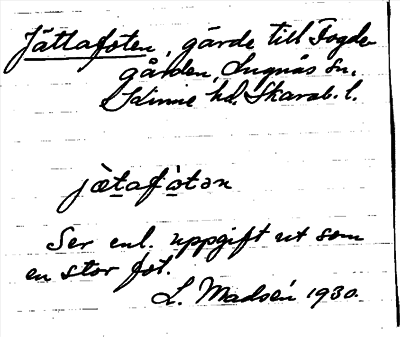 Jättafoten, gärde till Fogde-
gården, Lugnås sn.
Kinne hd. Skarab. l.
jètafòtən
Ser enl. uppgift ut som
en stor fot.
L. Madsén 1930.